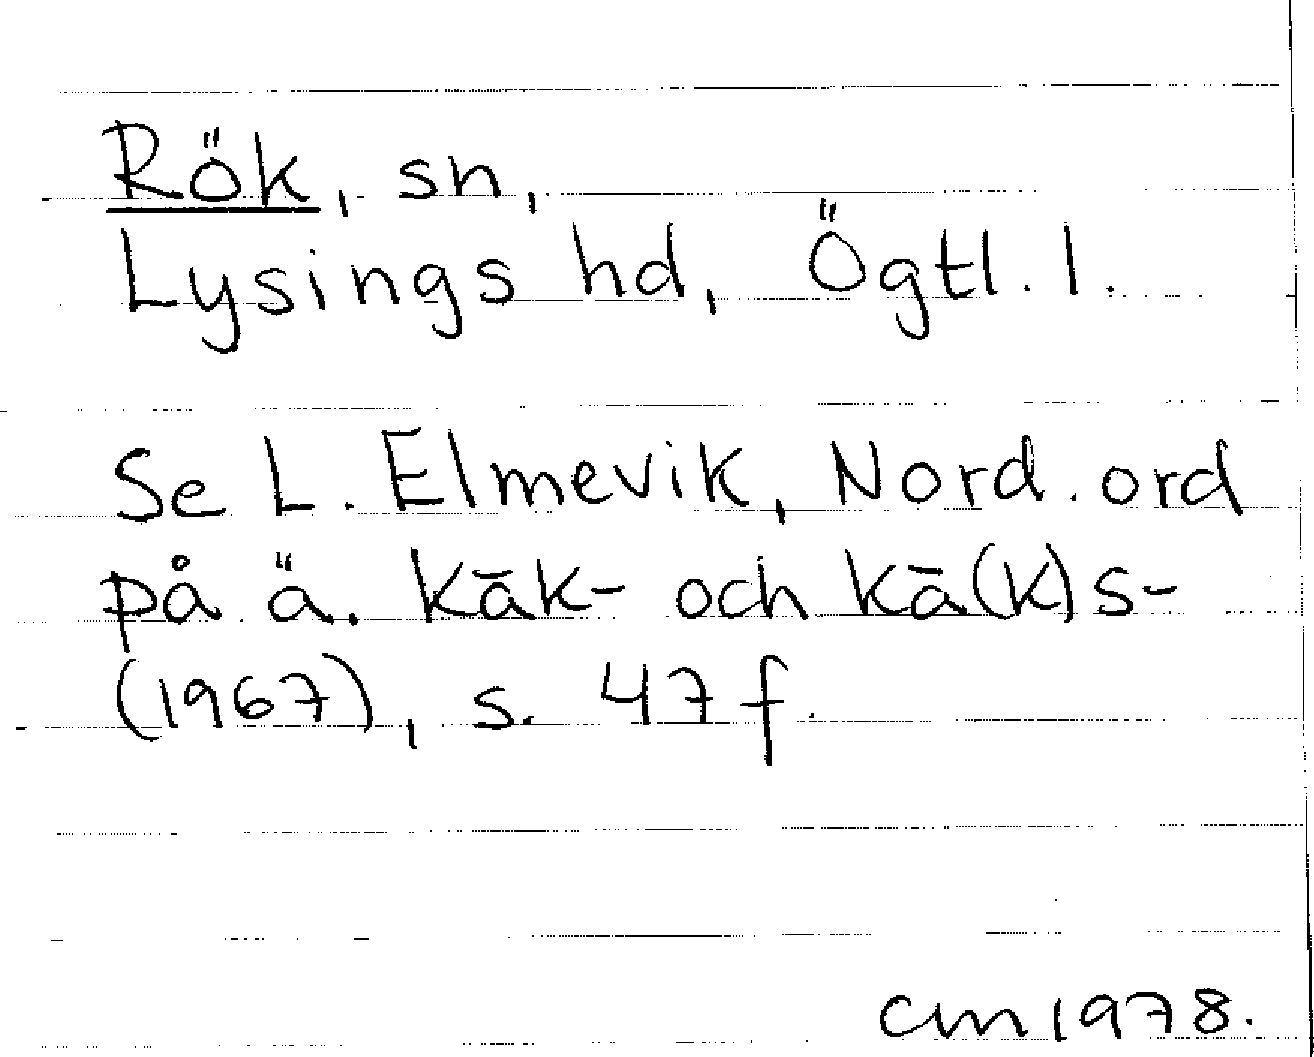 Rök, sn,
Lysings hd, Ögtl. l.
Se L. Elmevik, Nord. ord
på ä. kāk- och kā(k)s-
(1967), s. 47 f.
cm 1978.